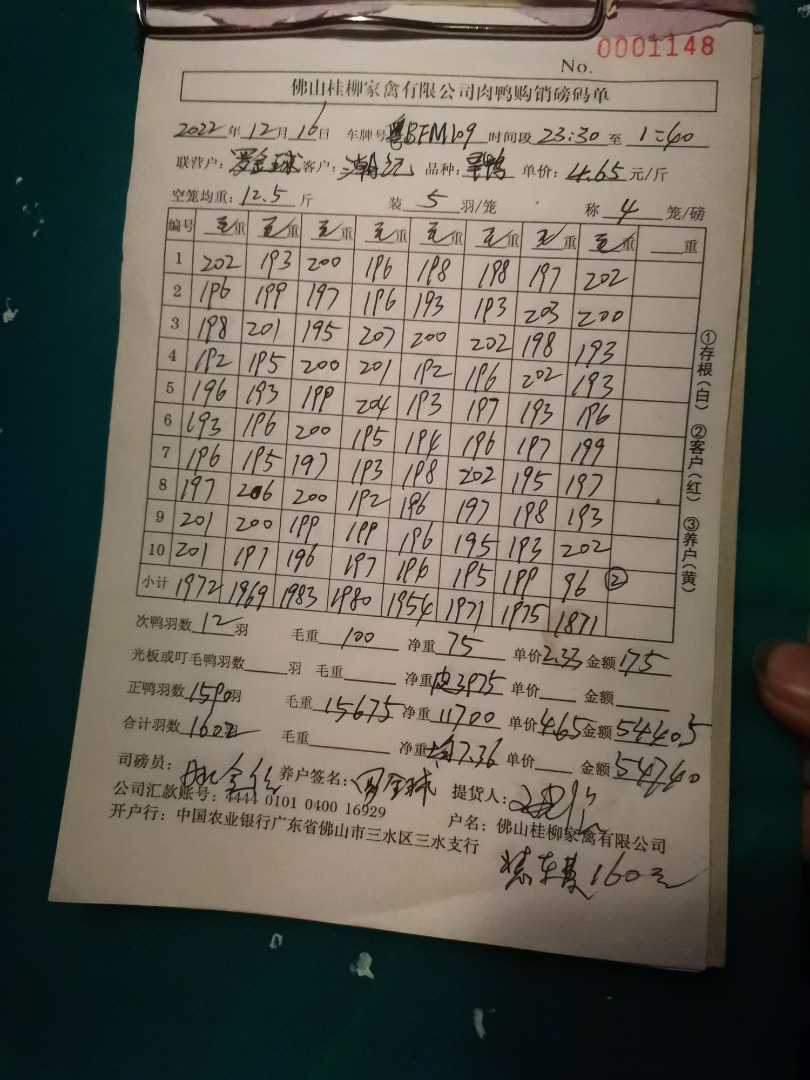 0001148
No.
佛山桂柳家禽有限公司肉鸭购销磅码单
2022年12月16日 车牌号粤BFM109 时间段23:30至1:40
联营户:罗金球 客户:潮记 品种: 单价:4.65元/斤
空笼均重:12.5斤 装5羽/笼 称4笼/磅
编号 毛重 毛重 毛重 毛重 毛重 毛重 毛重 毛重 重
1 202 193 200 196 198 198 197 202
2 196 199 197 196 193 193 203 200
3 198 201 195 207 200 202 198 193
4 192 195 200 201 192 196 202 193
5 196 193 199 204 193 197 193 196
6 193 196 200 195 194 196 197 199
7 196 195 197 193 198 202 195 197
8 197 206 200 192 196 197 198 193
9 201 200 199 199 196 195 193 202
10 201 197 196 197 196 195 199 96 ②
小计 1972 1969 1983 1980 1954 1971 1975 1871
次鸭羽数12羽 毛重100 净重75 单价2.33 金额175
光板或叮毛鸭羽数 羽 毛重 净重 3975 单价 金额
正鸭羽数1590羽 毛重15675 净重11700 单价4.65 金额54405
合计羽数1602 毛重 净重均7.36 单价 金额54740
司磅员: 养户签名:罗金球 提货人:
公司汇款账号:4444 0101 0400 16929 户名:佛山桂柳家禽有限公司
开户行:中国农业银行广东省佛山市三水区三水支行
160元
①存根(白) ②客户(红) ③养户(黄)